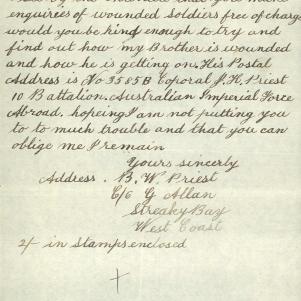 enquiries of wounded soldiers free of charge
would you be kind enough to try and
find out how my Brother is wounded
and how he is getting on. His Postal
Address is No 3585B Coporal J. H. Priest
10 Battalion. Australian Imperial Force
Abroad. hopeing I am not putting you
to to much trouble and that you can
oblige me I remain
Yours sincerly
Address. B. W. Priest
C/o G Allan
Streaky Bay
West Coast
2/- in stamps enclosed